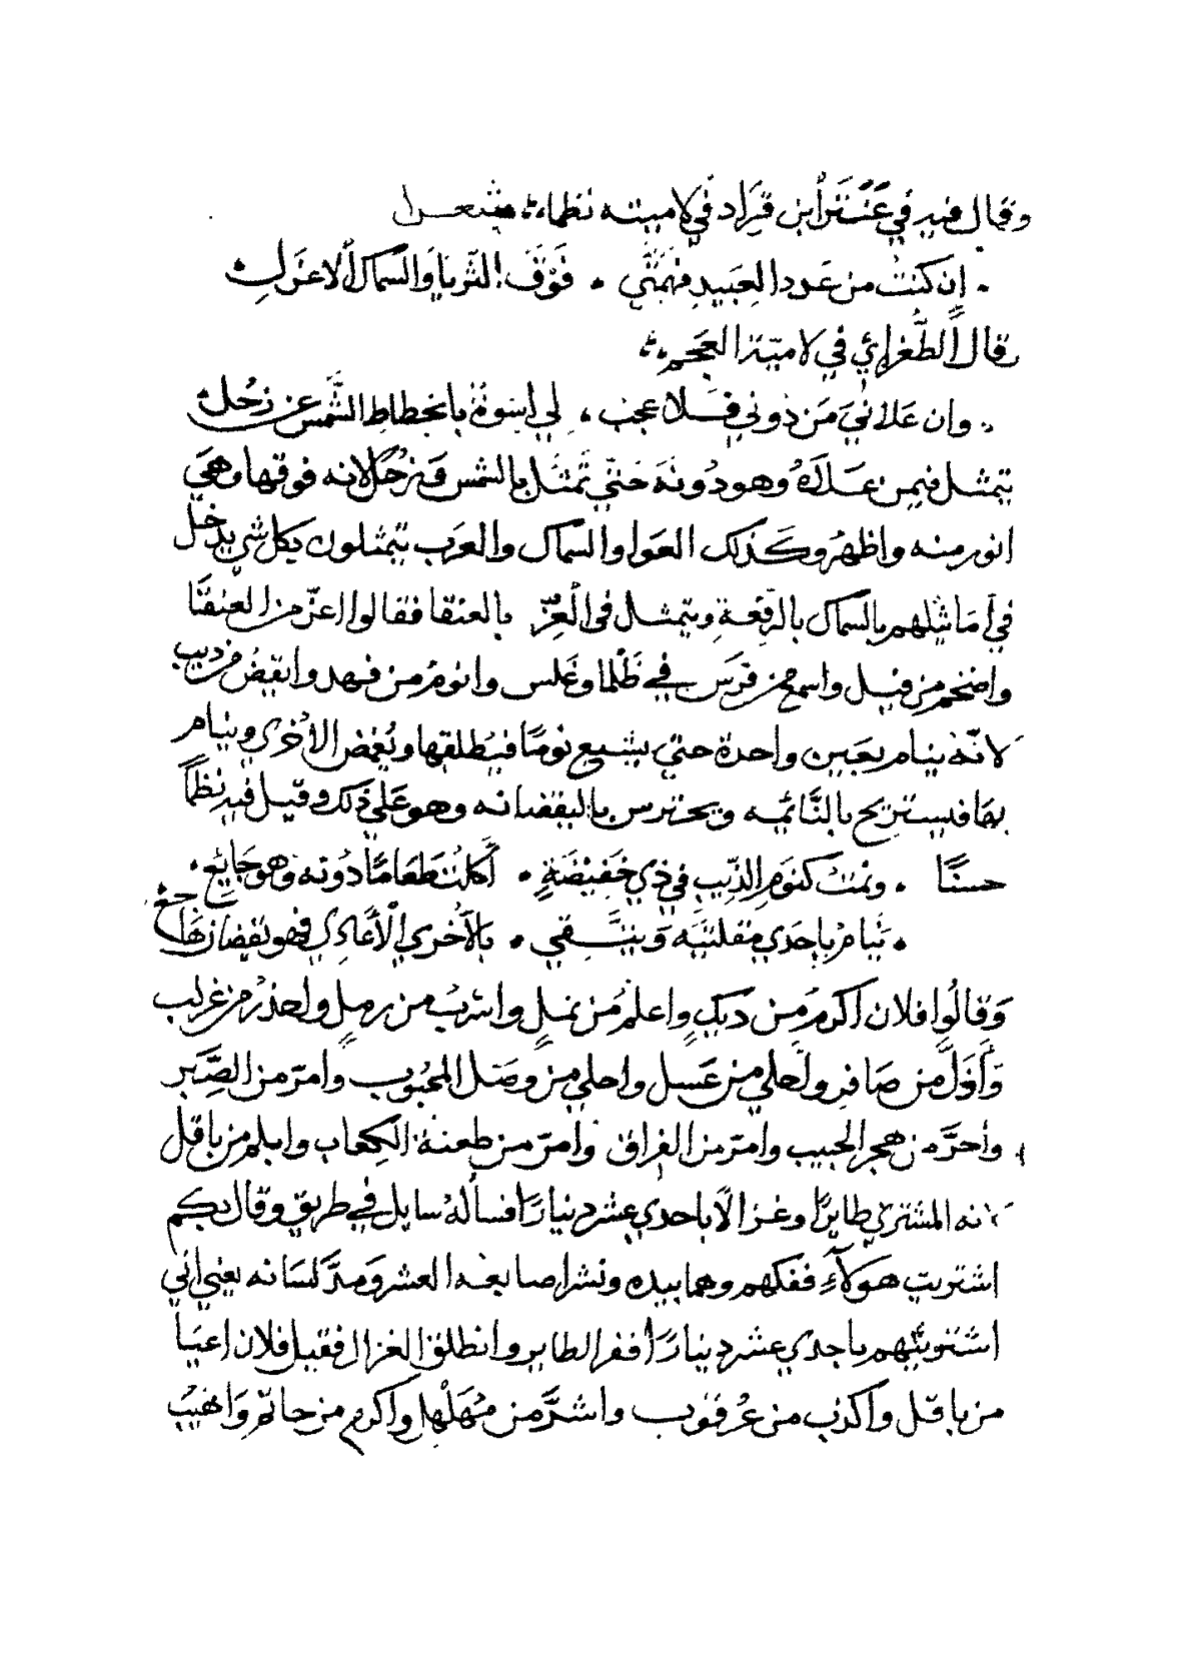 وقال فيه في عَنْتَرْ أبن قِرَاد في لاميته نظما شعرا
إن كنتُ من عدد العبيدِ فهمّتي . فَوْقَ الثّريا والسماك الاعزلِ
قال الطُّغرائي في لاميّة العجم
وان عَلاَنِيَ مَن دُوني فَلا عجب ، لي اسوةٌ بانحطاطِ الشَّمس عن زُحل
يتمثل فيمن عَلاَهُ وهو دُونَهُ حتّي تمثّل بالشمس وزُحل لانه فوقها وهي
انور منه واظهرُ وكَذلك العوا والسماك والعرَب يتمثلون بكل شي يدخل
في أمَاثيلهم بالسماك بالرفعةِ ويتمثل في الْعِزّ بالعنقا فقالوا اعزّ من العنقا
واضخم من فيل واسمع من فرس في ظَلْما وغَلس وانومُ من فهد وايقضُ من ديب
لانّهُ ينام بعين واحدة حتي يشبع نومًا فيُطلقها ويُغمض الاُخري وينام
بها فيستريح بالنَّائمه ويحترس باليقضانه وهو علي ذلك وقيل فيه نظمًا
حسنًا . ونمتُ كنومِ الذّيبِ في ذي حَفِيضَةٍ . أكلتُ طَعَامًا دُونه وهو جَايع .
. يَنامُ باِحدَي مقلتيَه وَيتّقي . باِلاُخري الْأعَادِي فهو يقضان هَاجع
وَقالُوا فلان اكرمُ من ديكٍ واعلمُ من نملٍ واشربُ من رملٍ واحذرُ من غراب
واحلي من عَسل واحلي من وصَل المحبُوب وامرّ من الصَّبَر
واحرَّ من هجر الحبيب وامرّ من الفراق وامرّ من طعنة الكِعَاب وابلم من باقل
لانه المشتري طايرًا وغزالًا باحدي عشر دينارًا فسألهُ سايل في طريق وقال بكم
اشتريت هَولآءِ ففكهم وهما بيده ونشر اصابعه العشر ومدَّ لسَانه يعني اني
اشتريتُهم باحدي عشر دينارًا ففر الطاير وانطلق الغزال فقيل فلان اعيَا
من باقل وأكذب من عُرقوب واشدَّ من مُهَلْهل واكرم من حاتم وَاهْيَبُ